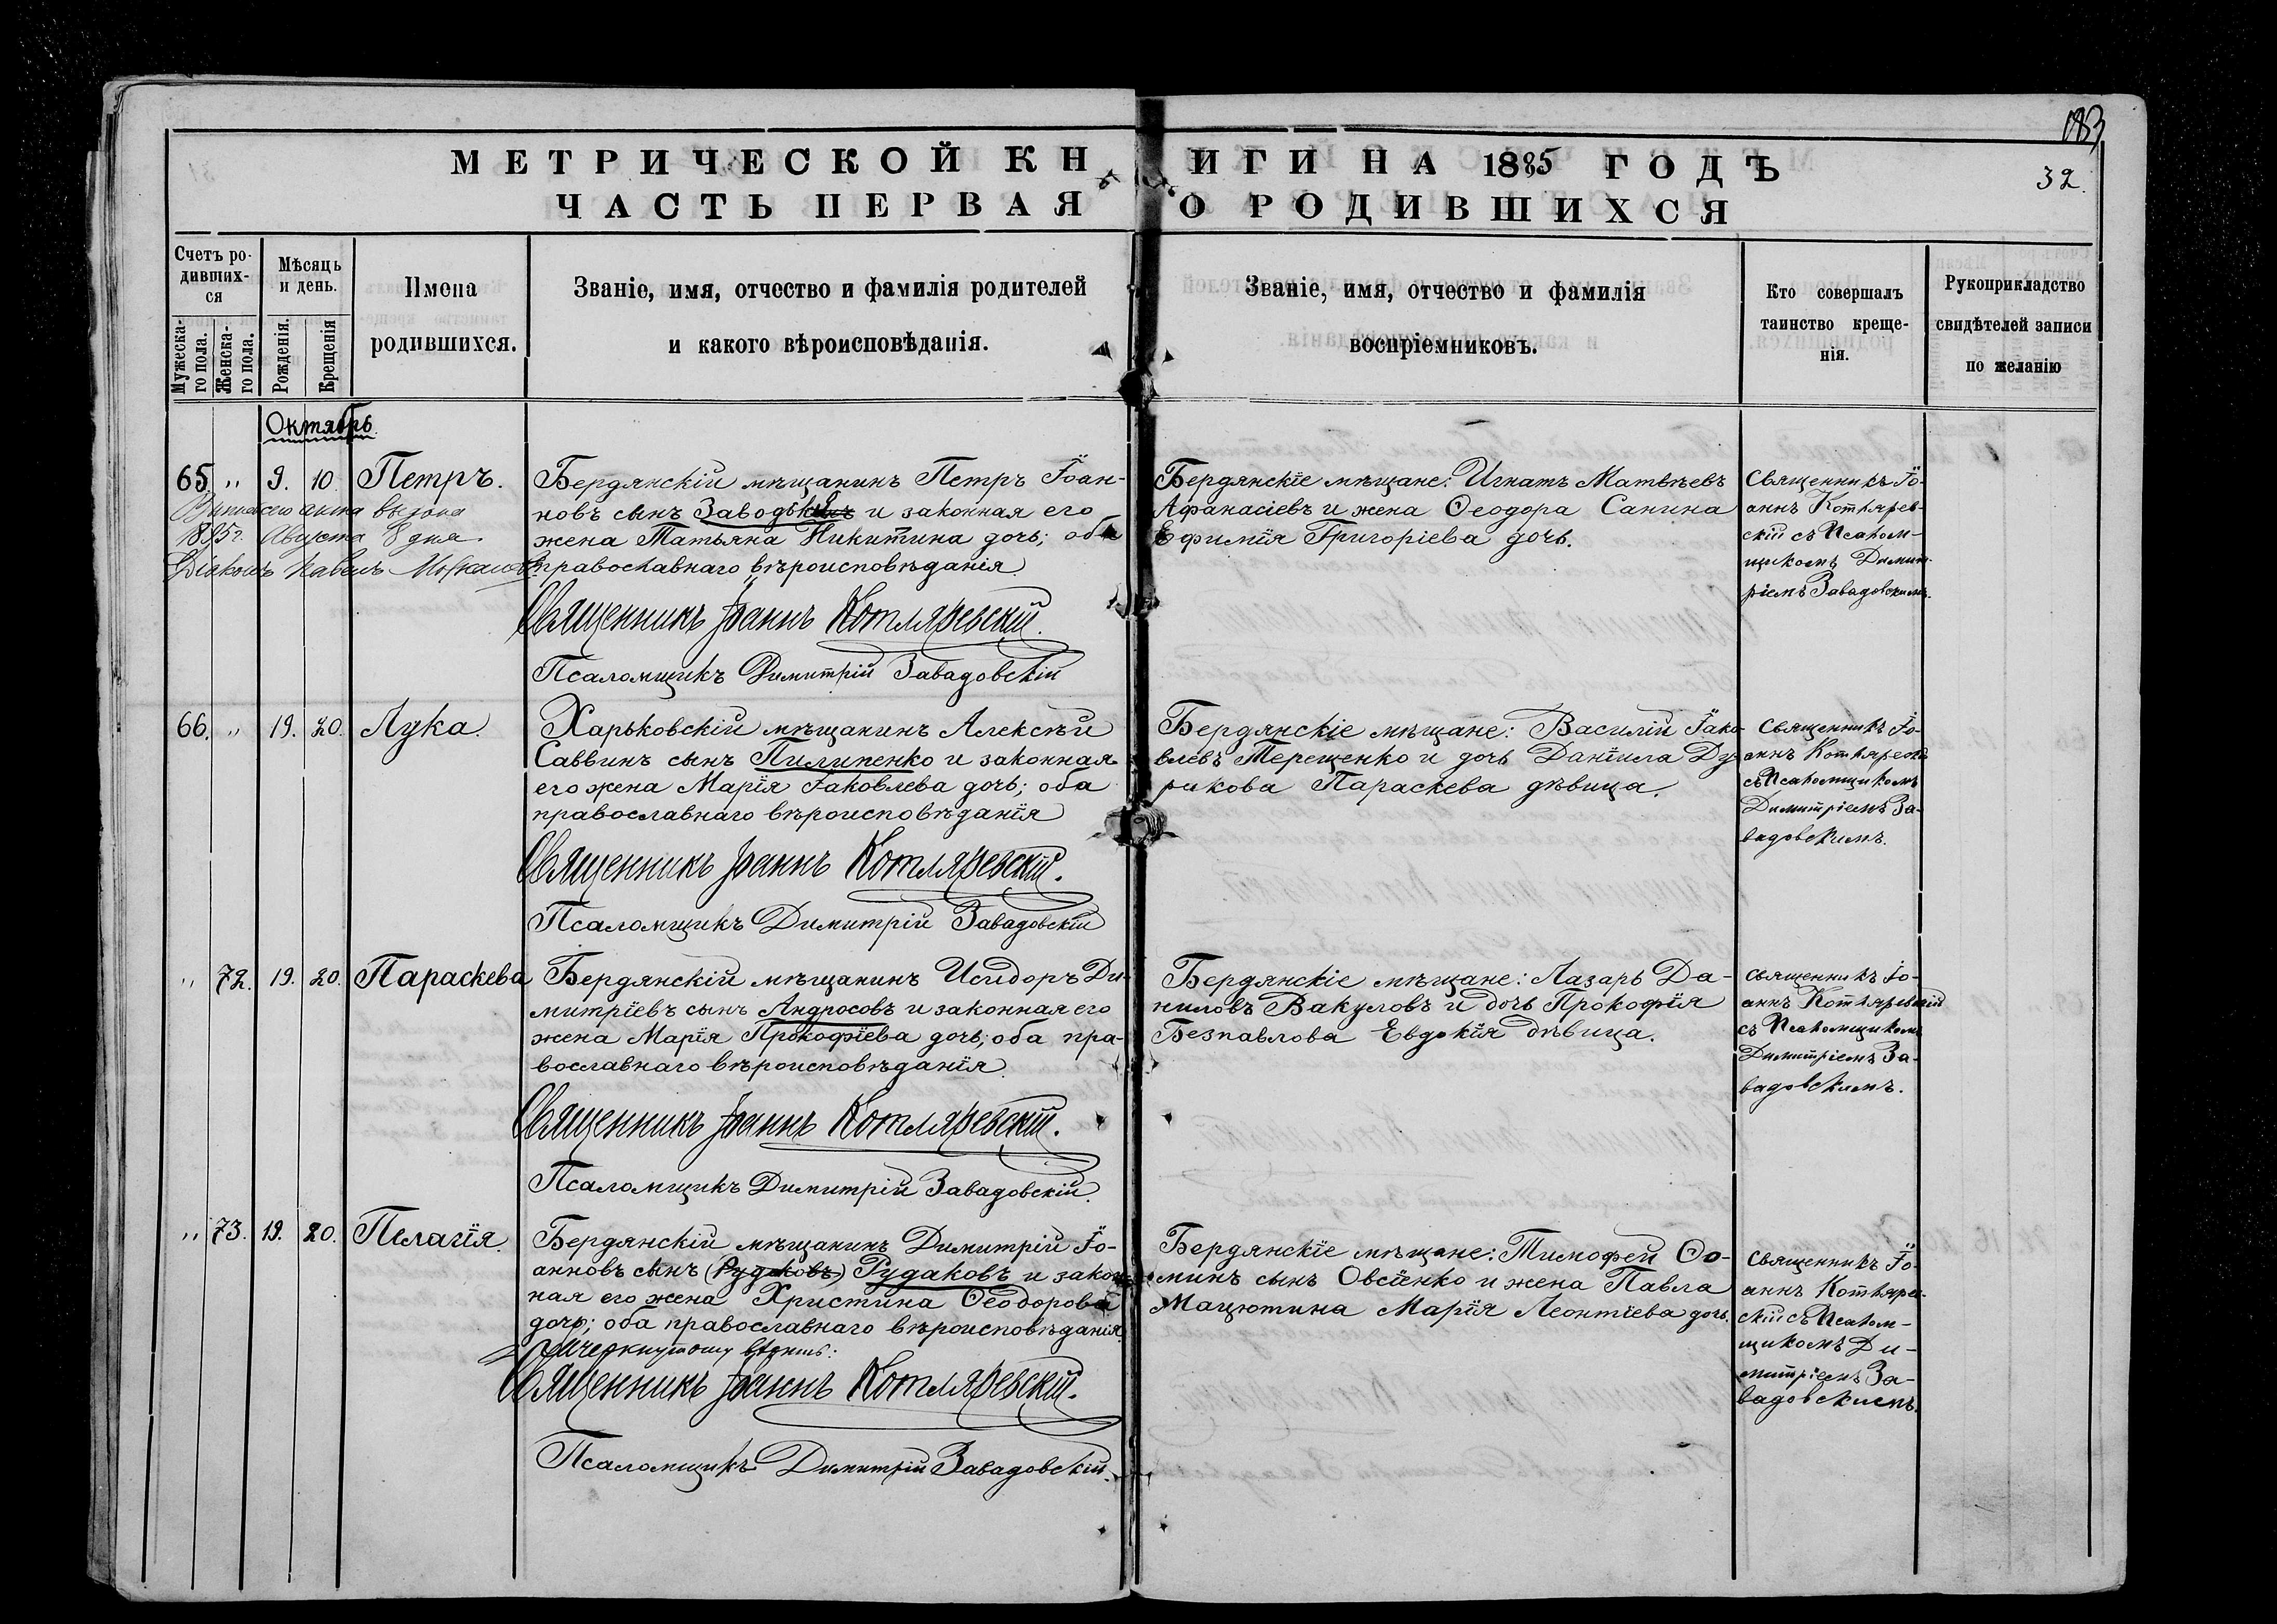 183
32.
МЕТРИЧЕСКОЙ КНИГИ НА 1885 ГОДЪ
ЧАСТЬ ПЕРВАЯ О РОДИВШИХСЯ
Счетъ ро-
дивших-
ся
Мужеска-
го пола.
Женска-
го пола.
Мѣсяцъ
и день.
Рожденія.
Крещенія
Имена
родившихся.
Званіе, имя, отчество и фамилія родителей
и какого вѣроисповѣданія.
Званіе, имя, отчество и фамилія
воспріемниковъ.
Кто совершалъ
таинство креще-
нія.
Рукоприкладство
свидѣтелей записи
по желанію
Октябрь.
65 " 9. 10. Петръ.
1895г. Августа 8 дня.
Діаконъ Павелъ
Бердянскій мѣщанинъ Петръ Іоан-
новъ сынъ и законная его
жена Татьяна Никитина дочь; оба
православнаго вѣроисповѣданія.
Священникъ Іоаннъ Котляревскій.
Псаломщикъ Димитрій Завадовскій
Бердянскіе мѣщане: Игнатъ Матвѣевъ
Афанасіевъ и жена Ѳеодора Санина
Ефимія Григоріева дочь.
Священникъ Іо-
аннъ Котлярев-
скій съ Псалом-
щикомъ Димит-
ріемъ Завадовскимъ.
66. " 19. 20. Лука.
Харьковскій мѣщанинъ Алексѣй
Саввинъ сынъ Пилипенко и законная
его жена Марія Іаковлева дочь; оба
православнаго вѣроисповѣданія
Священникъ Іоаннъ Котляревскій.
Псаломщикъ Димитрій Завадовскій
Бердянскіе мѣщане: Василій Іако-
влевъ Терещенко и дочь Даніила Ду-
ракова Параскева дѣвица.
Священникъ Іо-
аннъ Котляревскій
съ Псаломщикомъ
Димитріемъ За-
вадовскимъ.
" 72. 19. 20. Параскева
Бердянскій мѣщанинъ Исидоръ Ди-
митріевъ сынъ Андросовъ и законная его
жена Марія Прокофіева дочь; оба пра-
вославнаго вѣроисповѣданія.
Священникъ Іоаннъ Котляревскій.
Псаломщикъ Димитрій Завадовскій.
Бердянскіе мѣщане: Лазарь Да-
ниловъ Вакуловъ и дочь Прокофія
Безпавлова Евдокія дѣвица.
Священникъ Іо-
аннъ Котляревскій
съ Псаломщикомъ
Димитріемъ За-
вадовскимъ.
" 73. 19. 20. Пелагія.
Бердянскій мѣщанинъ Димитрій Іо-
анновъ сынъ (Рудаковъ) Рудаковъ и закон-
ная его жена Христина Ѳеодорова
дочь; оба православнаго вѣроисповѣданія.
Зачеркнутому вѣрить:
Священникъ Іоаннъ Котляревскій.
Псаломщикъ Димитрій Завадовскій.
Бердянскіе мѣщане: Тимофей Ѳо-
минъ сынъ Овсіенко и жена Павла
Мацютина Марія Леонтіева дочь.
Священникъ Іо-
аннъ Котлярев-
скій съ Псалом-
щикомъ Ди-
митріемъ За-
вадовскимъ.